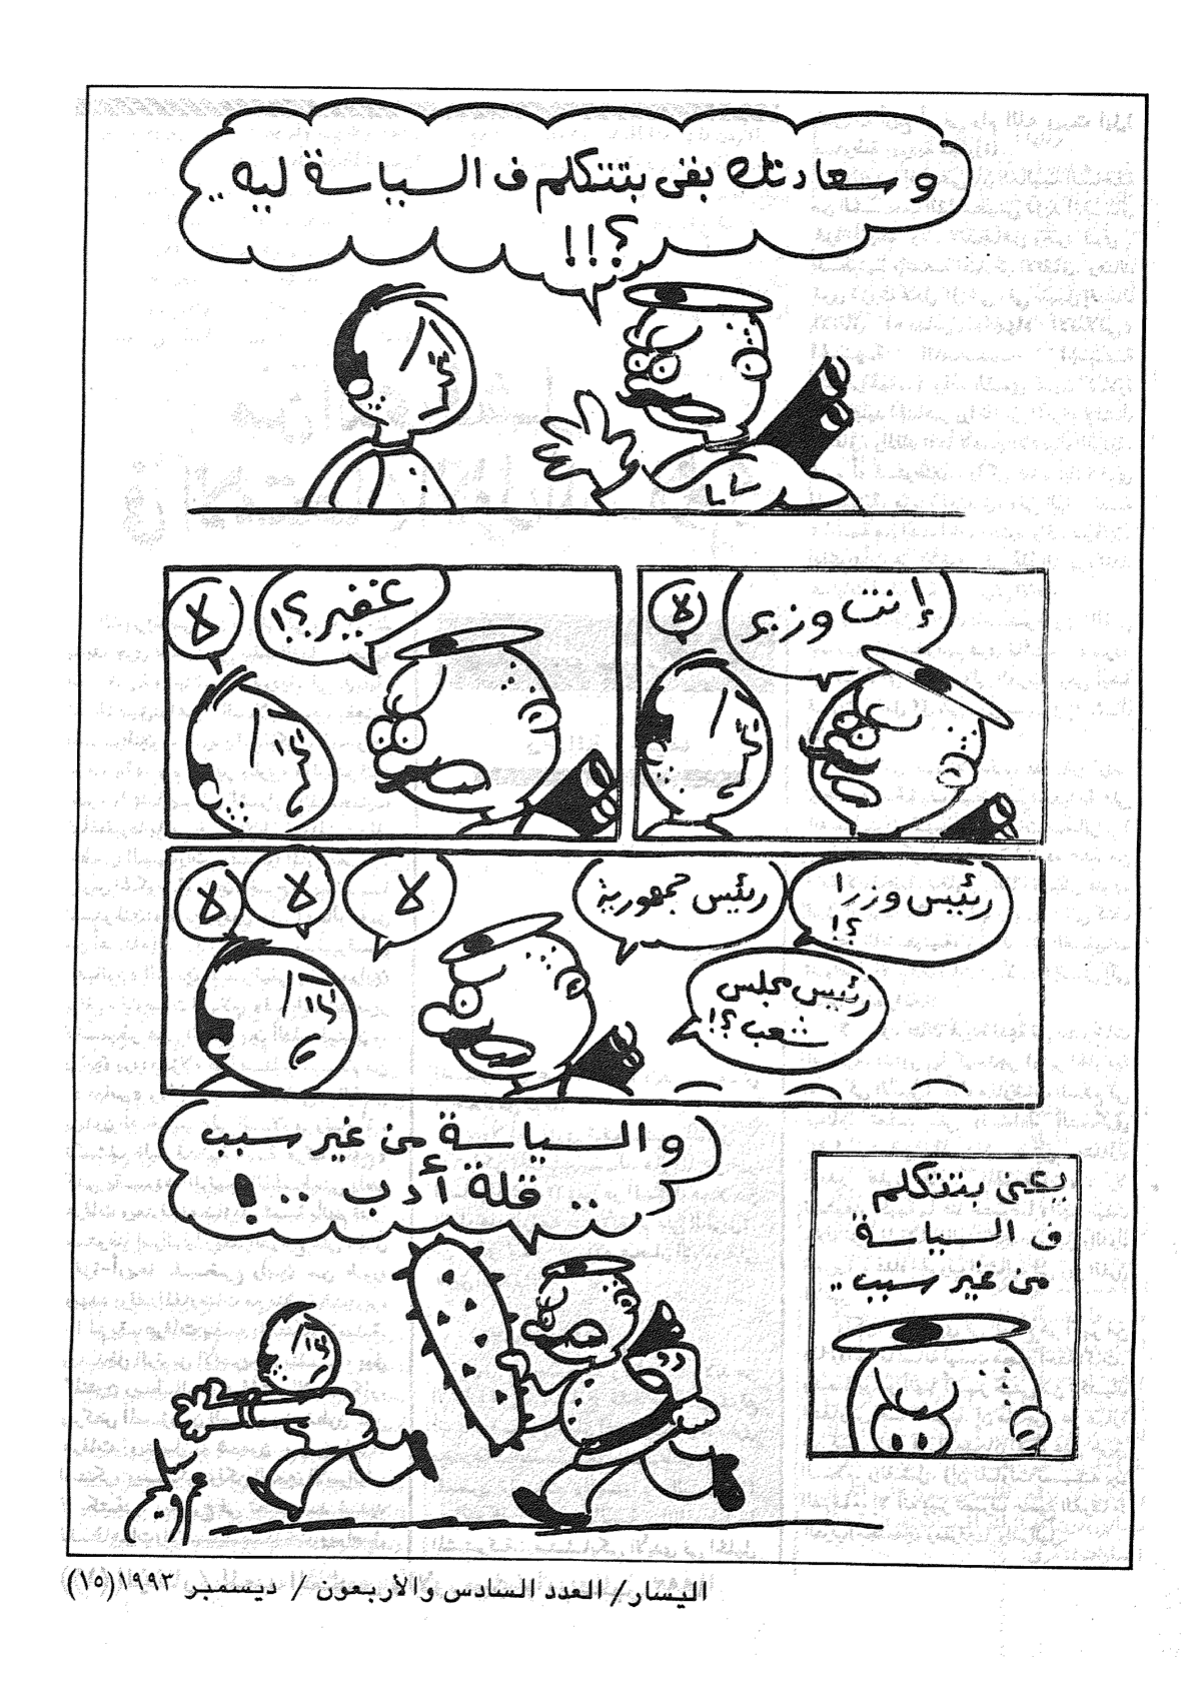 وسعادتك بقى بتتكلم ف السياسة ليه..
؟!!
إنت وزير
لا
غفير؟!
لا
رئيس وزرا
؟!
رئيس جمهورية
رئيس مجلس
شعب؟!
لا
لا
لا
يعنى بتتكلم
ف السياسة
من غير سبب..
والسياسة من غير سبب
.. قلة أدب ..!
اليسار/ العدد السادس والأربعون / ديسمبر ١٩٩٣(١٥)